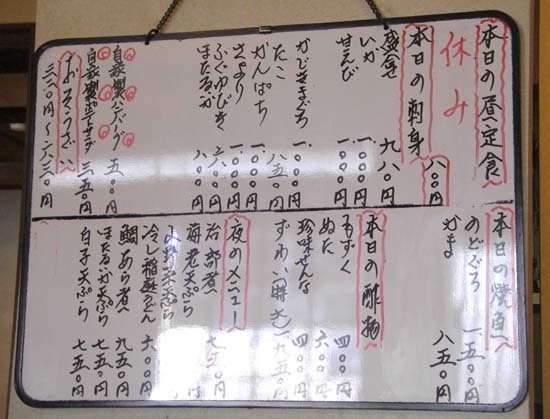 本日の昼定食
休み
八〇〇円
本日の刺身
盛合せ 九八〇円
いか
甘えび 一、〇〇〇円
かじきまぐろ 一、〇〇〇円
たこ 八五〇円
かんぱち 一、〇〇〇円
さより 一、〇〇〇円
ふぐゆびき
ほたるいか 八〇〇円
自家製ハンバーグ 五〇〇円
自家製ポテトサラダ 三五〇円
おそうざい
三三〇円〜六三〇円
本日の焼魚
のどぐろ 一、五〇〇円
かま 八五〇円
本日の酢物
もずく 四〇〇円
ぬた 六〇〇円
珍味せんな 四〇〇円
ずわい(酢) 九五〇円
夜のメニュー
治部煮 七五〇円
海老天ぷら
山野菜天ぷら
冷し稲庭うどん 六〇〇円
鯛あら煮 九五〇円
ほたるいか天ぷら 七五〇円
白子天ぷら 七五〇円